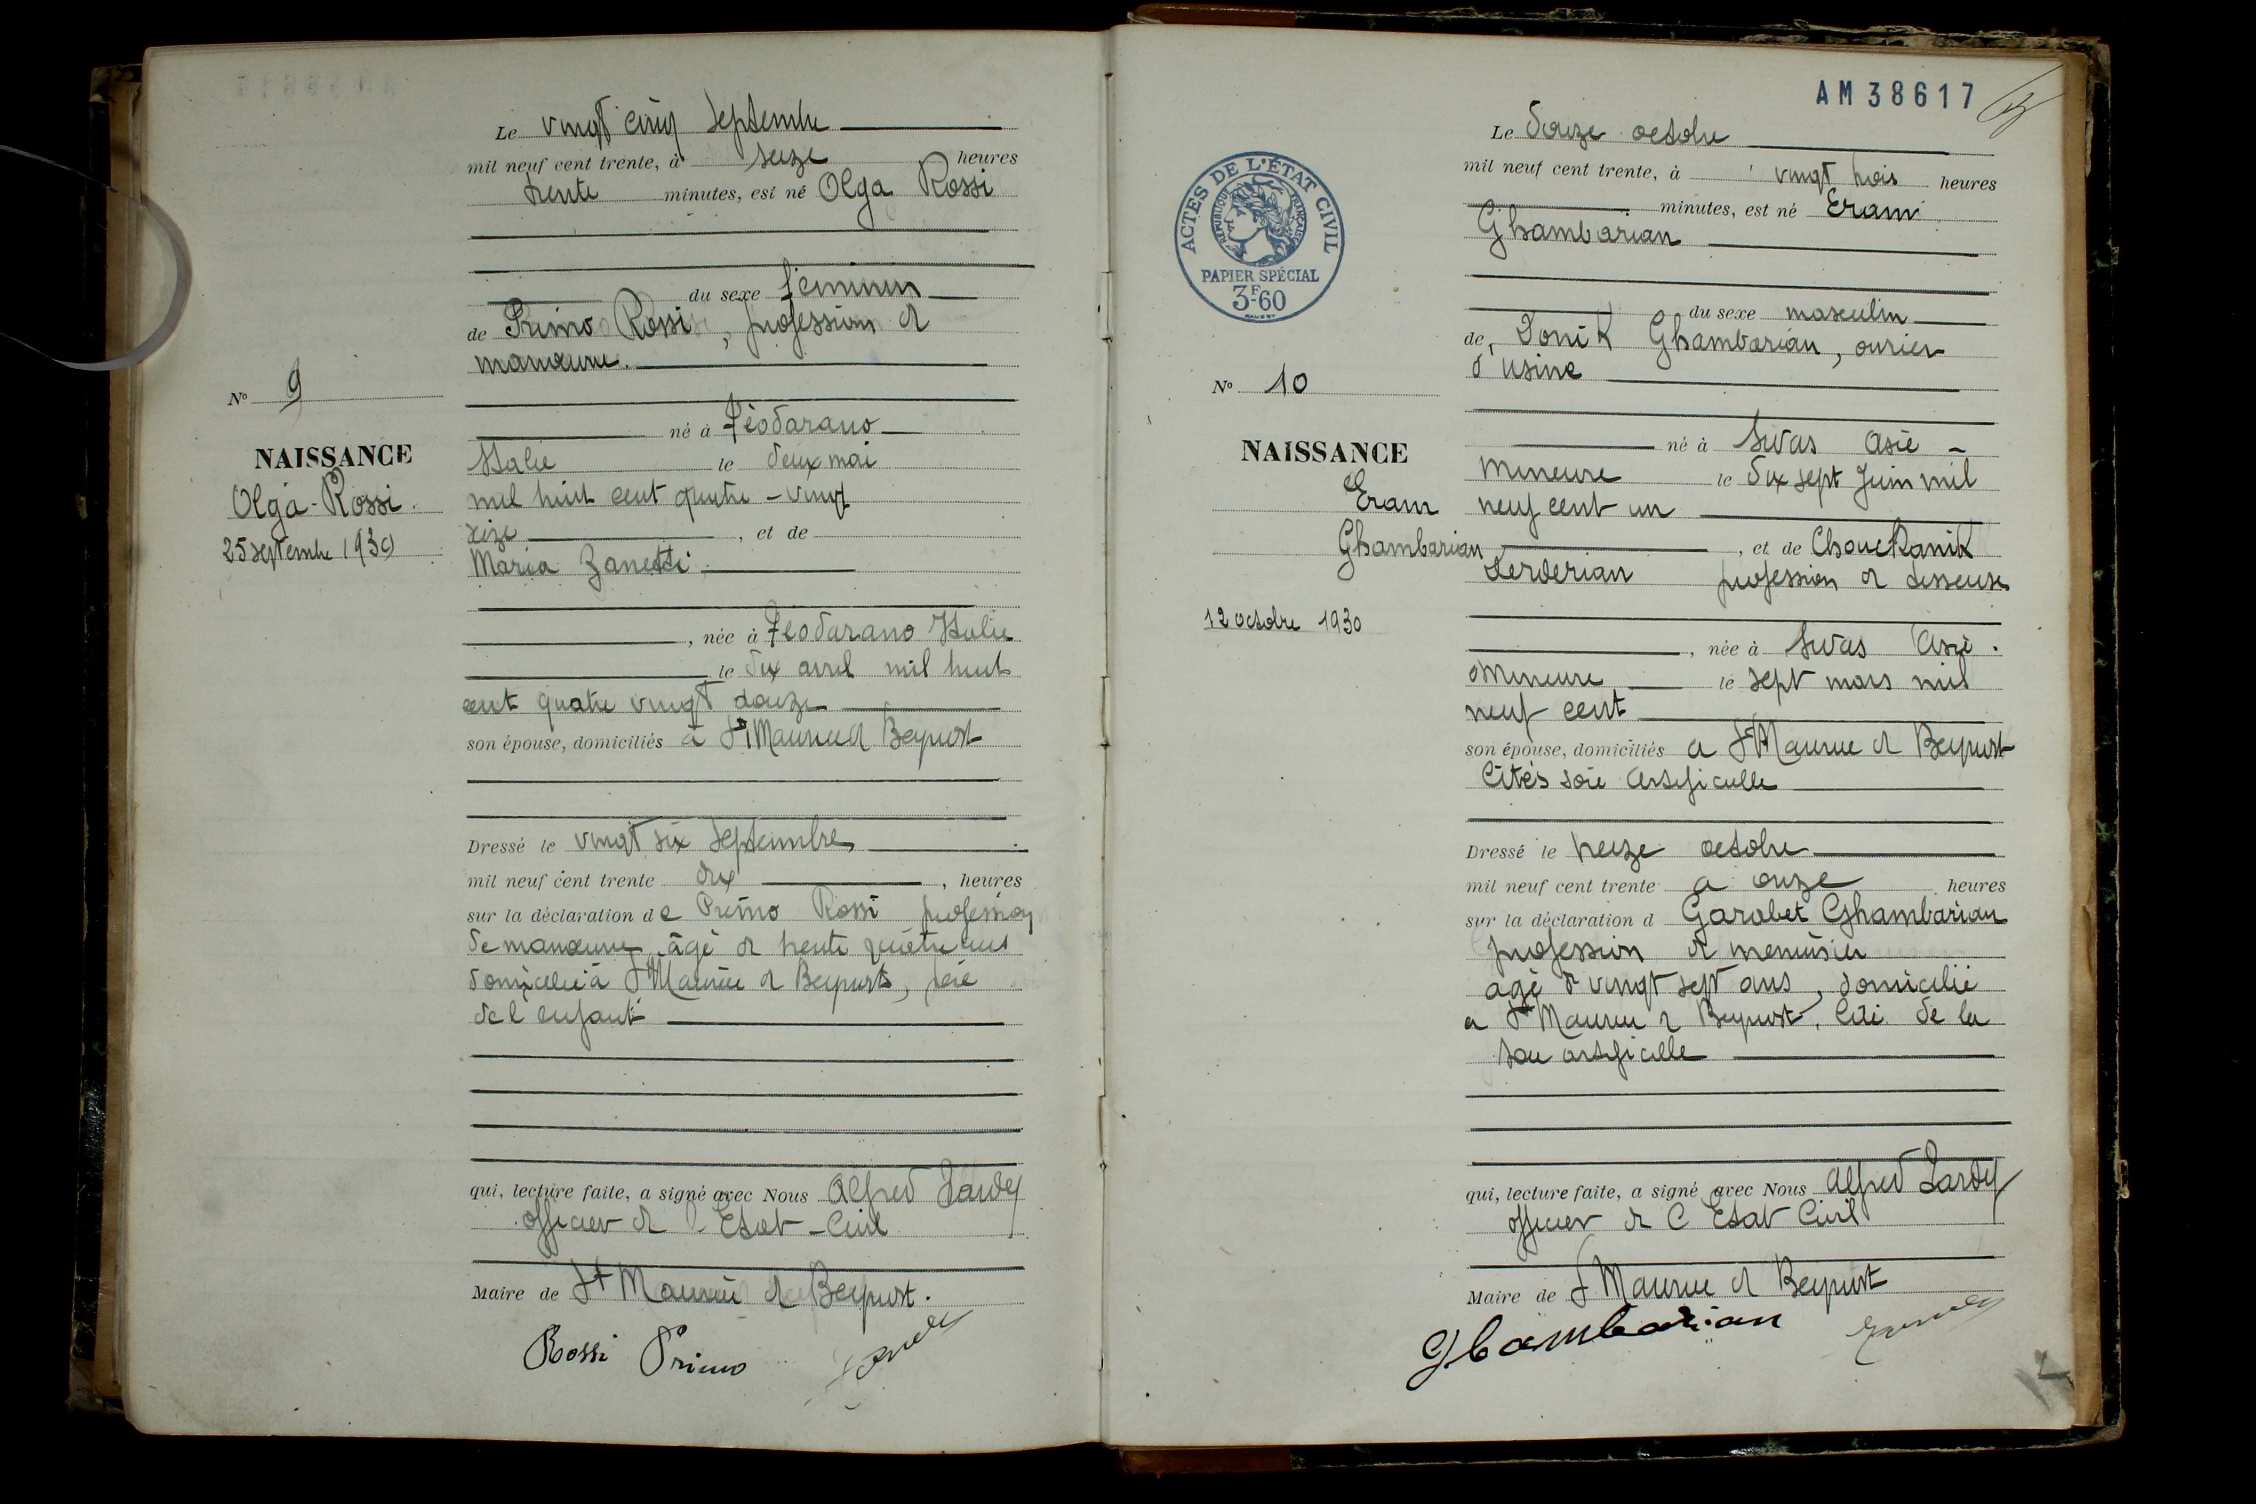 Le vingt cinq septembre
mil neuf cent trente, à seize heures
trente minutes, est né Olga Rossi
du sexe féminin
de Primo Rossi, profession de
manœuvre.
né à
Italie le deux mai
mil huit cent quatre-vingt
seize, et de
Maria Zanetti
, née à Italie
le dix avril mil huit
cent quatre vingt douze
son épouse, domiciliés à St Maurice de Beynost
Dressé le vingt six septembre
mil neuf cent trente dix, heures
sur la déclaration de Primo Rossi profession
de manœuvre âgé de trente quatre ans
domicilié à St Maurice de Beynost, père
de l enfant
qui, lecture faite, a signé avec Nous Alfred
officier de l Etat-Civil
Maire de St Maurice de Beynost.
Rossi Primo
No 9
NAISSANCE
Olga-Rossi.
25 septembre 1930
AM 38617
Le Douze octobre
mil neuf cent trente, à vingt trois heures
minutes, est né Eram
Ghambarian
du sexe masculin
de Ghambarian, ouvrier
d'usine
né à Sivas Asie -
Mineure le dix sept Juin mil
neuf cent un
, et de Chouckanik
Derderian profession de
, née à Sivas Asie.
Mineure le sept mars mil
neuf cent
son épouse, domiciliés à St Maurice de Beynost
Cités soie artificielle
Dressé le treize octobre
mil neuf cent trente à onze heures
sur la déclaration d Garabet Ghambarian
profession de menuisier
âgé de vingt sept ans, domicilié
à St Maurice de Beynost, Cité de la
soie artificielle
qui, lecture faite, a signé avec Nous Alfred
officier de l Etat Civil
Maire de St Maurice de Beynost
Ghambarian
ACTES DE L'ÉTAT CIVIL
RÉPUBLIQUE FRANÇAISE
PAPIER SPÉCIAL
3F60
No 10
NAISSANCE
Eram
Ghambarian
12 octobre 1930